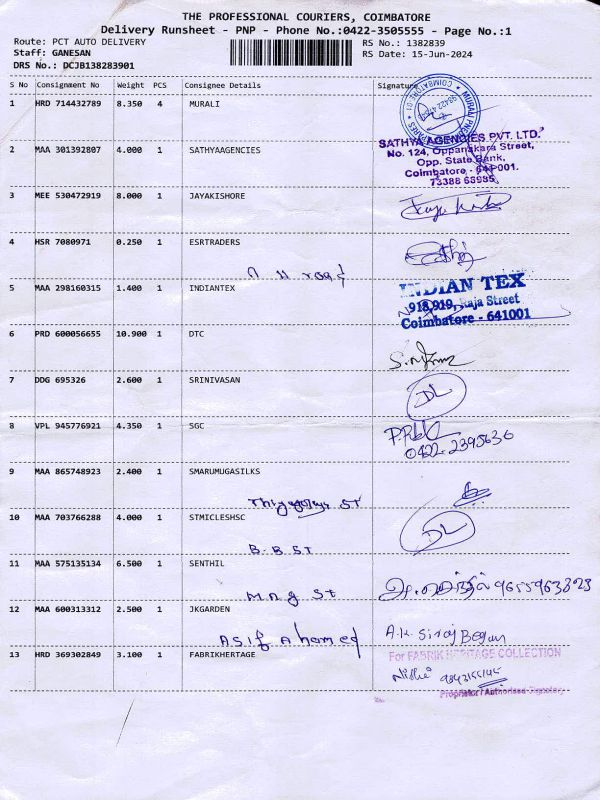 THE PROFESSIONAL COURIERS, COIMBATORE
Delivery Runsheet - PNP - Phone No.:0422-3505555 - Page No.:1
Route: PCT AUTO DELIVERY
RS No.: 1382839
Staff: GANESAN
RS Date: 15-Jun-2024
DRS No.: DCJB138283901
S No Consignment No Weight PCS Consignee Details Signature
1 HRD 714432789 8.350 4 MURALI
SATHYA AGENCIES PVT. LTD.
2 MAA 301392807 4.000 1 SATHYAAGENCIES
No. 124, Oppanakara Street,
Opp. State Bank,
Coimbatore - 641001.
73388 65935
3 MEE 530472919 8.000 1 JAYAKISHORE
4 HSR 7080971 0.250 1 ESRTRADERS
5 MAA 298160315 1.400 1 INDIANTEX
INDIAN TEX
918,919, Raja Street
Coimbatore - 641001
6 PRD 600056655 10.900 1 DTC
7 DDG 695326 2.600 1 SRINIVASAN
DL
8 VPL 945776921 4.350 1 SGC
0422 2395636
9 MAA 865748923 2.400 1 SMARUMUGASILKS
ST
10 MAA 703766288 4.000 1 STMICLESHSC
DL
B.B ST
11 MAA 575135134 6.500 1 SENTHIL
9655963823
M.n g ST
12 MAA 600313312 2.500 1 JKGARDEN
Asif Ahamed
A.K. Siraj Begam
13 HRD 369302849 3.100 1 FABRIKHERTAGE
For FABRIK HERITAGE COLLECTION
Proprietor / Authorised Signatory